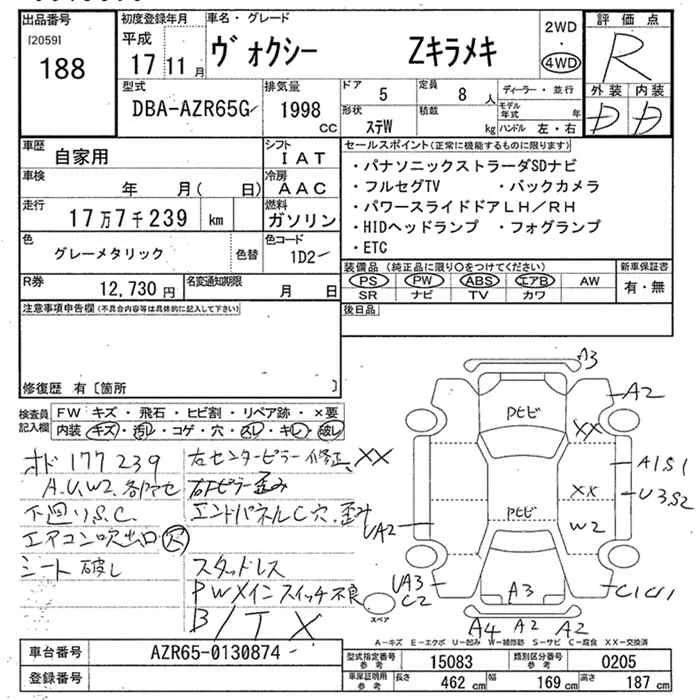 出品番号
[2059]
188
初度登録年月
平成
17 11 月
車名・グレード
ヴォクシー Zキラメキ
2WD
・
4WD
評価点
R
外装 内装
D D
型式
DBA-AZR65G
排気量
1998
CC
ドア 5
定員 8 人
形状 ステW
積載 kg
ディーラー・並行
モデル年式 年
ハンドル 左・右
車歴
自家用
シフト
IAT
車検
年 月( 日)
冷房
AAC
走行
17万7千239 km
燃料
ガソリン
色
グレーメタリック
色替
色コード
1D2
R券
12,730 円
名変通知期限
月 日
セールスポイント(正常に機能するものに限ります)
・パナソニックストラーダSDナビ
・フルセグTV ・バックカメラ
・パワースライドドアLH/RH
・HIDヘッドランプ ・フォグランプ
・ETC
装備品(純正品に限り○をつけてください)
PS PW ABS エアB AW
SR ナビ TV カワ
新車保証書
有・無
注意事項申告欄(不具合内容等は具体的に記入して下さい)
後日品
修復歴 有〔箇所 〕
検査員
記入欄
FW キズ・飛石・ヒビ割・リペア跡・×要
内装 キズ・汚レ・コゲ・穴・スレ・キレ・破レ
オド 177239
A.U.W2.各所アセ
下廻りS.C.
エアコン吹出口
シート破レ
右センターピラー修正 XX
右Fピラー歪み
エンドパネルC穴.歪み
スタッドレス
PWメインスイッチ不良
B/T X
A3
A2
Pセヒ
XX
A1S1
XX
U3S2
Pセヒ
W2
UA2
UA3
C2
A3
C1U1
スペア
A4 A2 A2
A-キズ E-エクボ U-凹み W-補修跡 S-サビ C-腐食 XX-交換済
車台番号
AZR65-0130874
登録番号
型式指定番号
参考
15083
類別区分番号
参考
0205
車庫証明用
参考
長さ 462 cm
幅 169 cm
高さ 187 cm